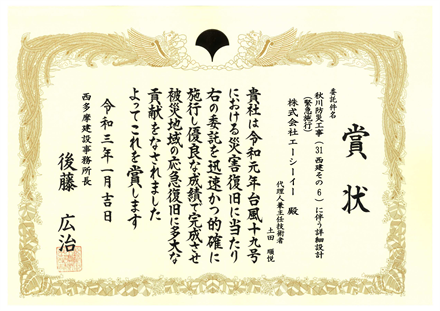 賞状
委託件名
秋川防災工事(31西建その6)に伴う詳細設計
(緊急施行)
株式会社エーシーイー 殿
代理人兼主任技術者
土田 順悦
貴社は令和元年台風十九号
における災害復旧に当たり
右の委託を迅速かつ的確に
施行し優良な成績で完成させ
被災地域の応急復旧に多大な
貢献をなされました
よってこれを賞します
令和三年一月吉日
西多摩建設事務所長
後藤 広治